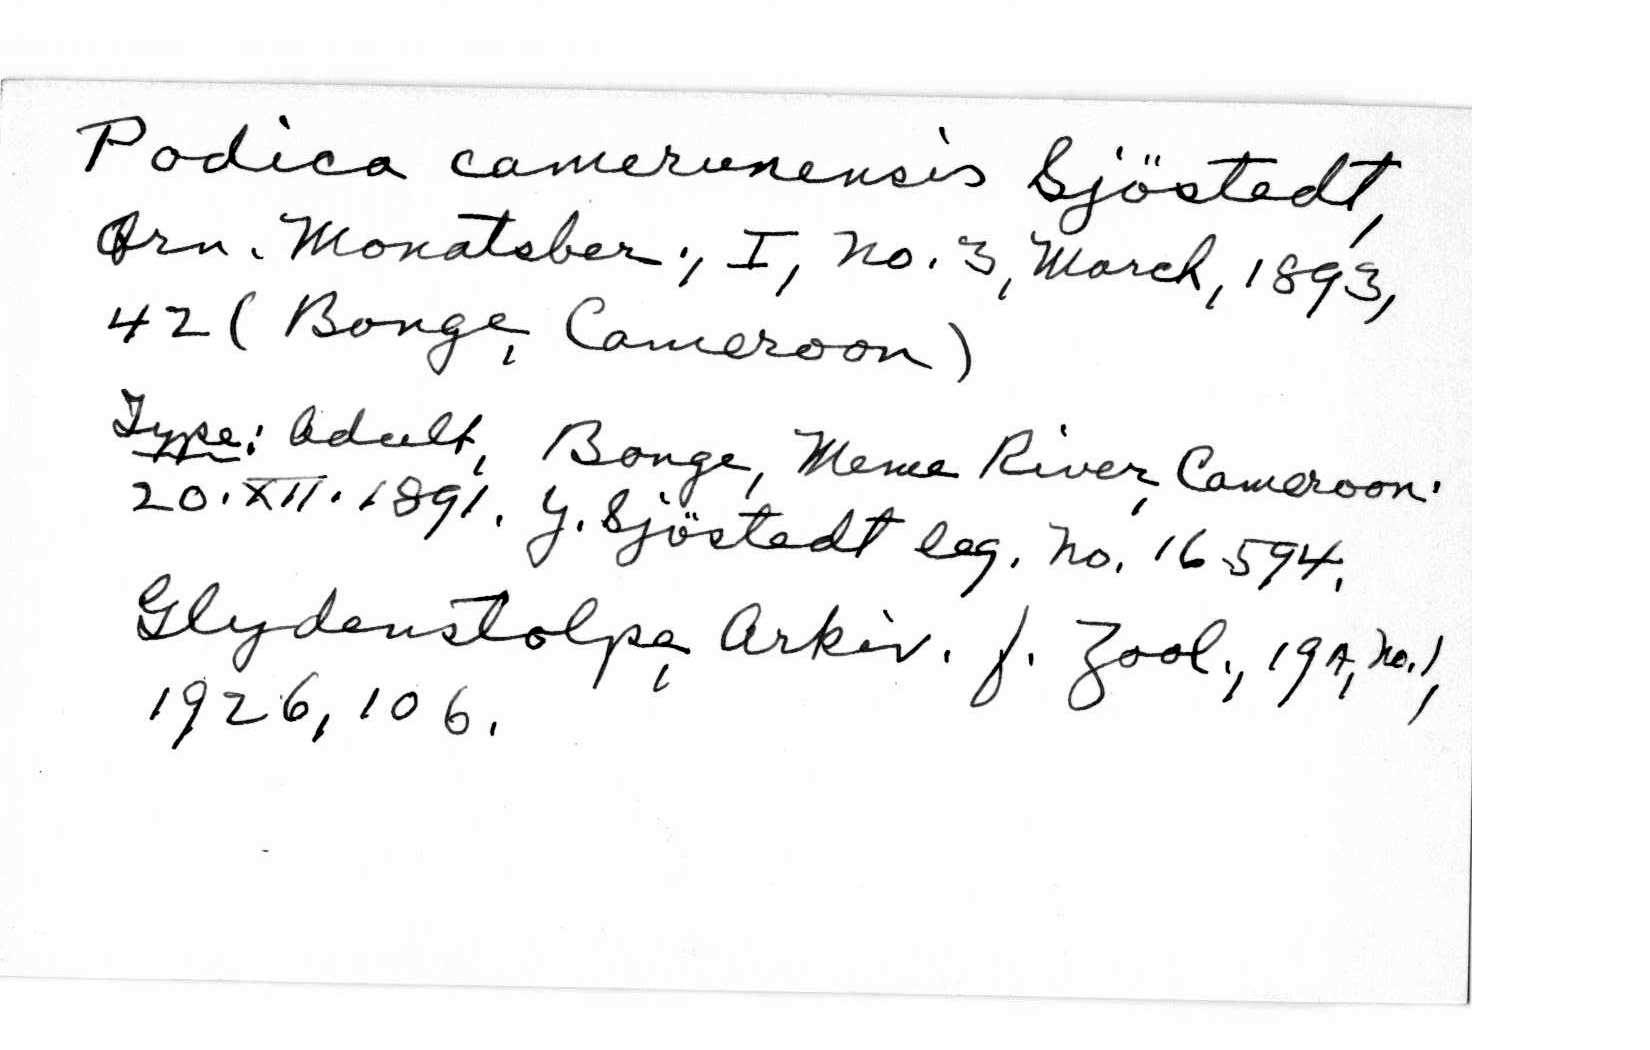 Podica camerunensis Sjöstedt,
Orn. Monatsber., I, No. 3, March, 1893,
42 (Bonge, Cameroon)
Type: Adult, Bonge, Meme River, Cameroon.
20.XII.1891. Y. Sjöstedt leg. No. 16594.
Glydenstolpe, Arkiv. f. Zool., 19A, No. 1,
1926, 106.